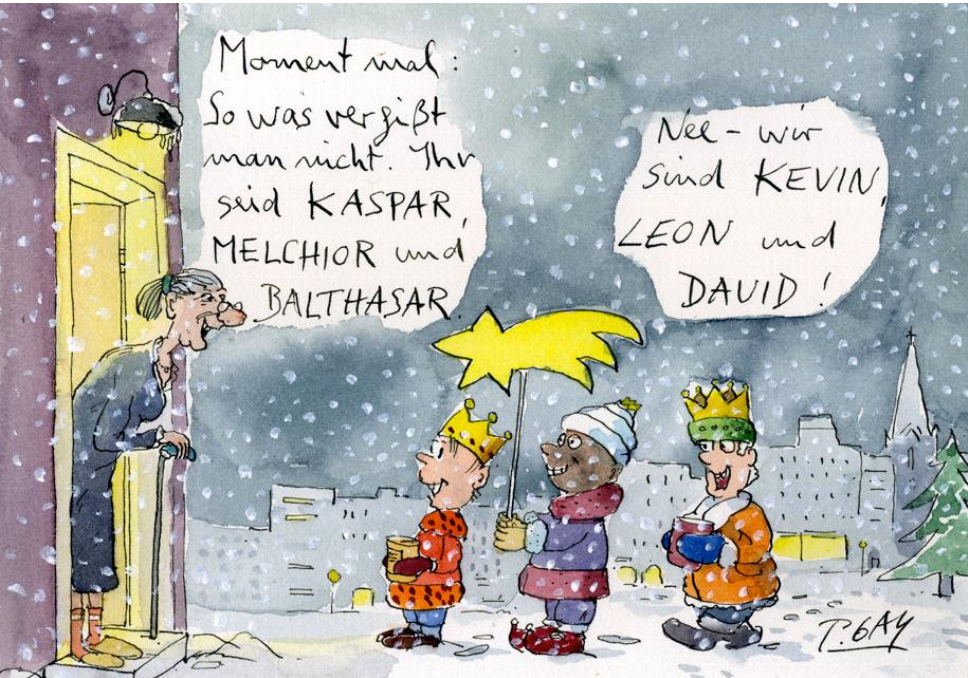 Moment mal:
So was vergißt
man nicht. Ihr
seid KASPAR,
MELCHIOR und
BALTHASAR.
Nee - wir
sind KEVIN,
LEON und
DAVID!
P. GAY